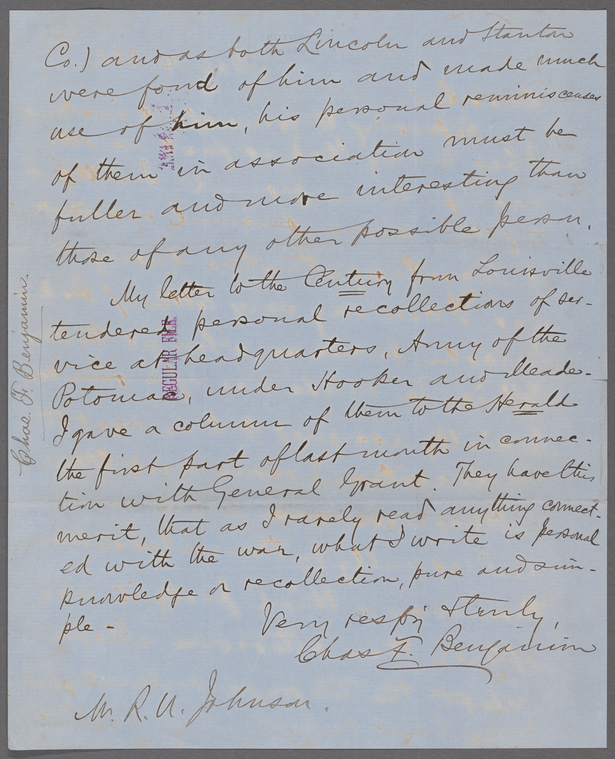 Co.) and as both Lincoln and Stanton
were fond of him and made much
use of him, his personal reminiscences
of them in association must be
fuller and more interesting than
those of any other possible person.
My letter to the Century from Louisville
tendered personal recollections of ser-
vice at headquarters, Army of the
Potomac, under Hooker and Meade.
I gave a column of them to the Herald
the first part of last month in connec-
tion with General Grant. They have this
merit, that as I rarely read anything connect-
ed with the war, what I write is personal
knowledge or recollection, pure and sim-
ple -
Very respy & truly,
Chas F. Benjamin
Mr. R. U. Johnson.
Chas. F. Benjamin.
REGULAR FILE